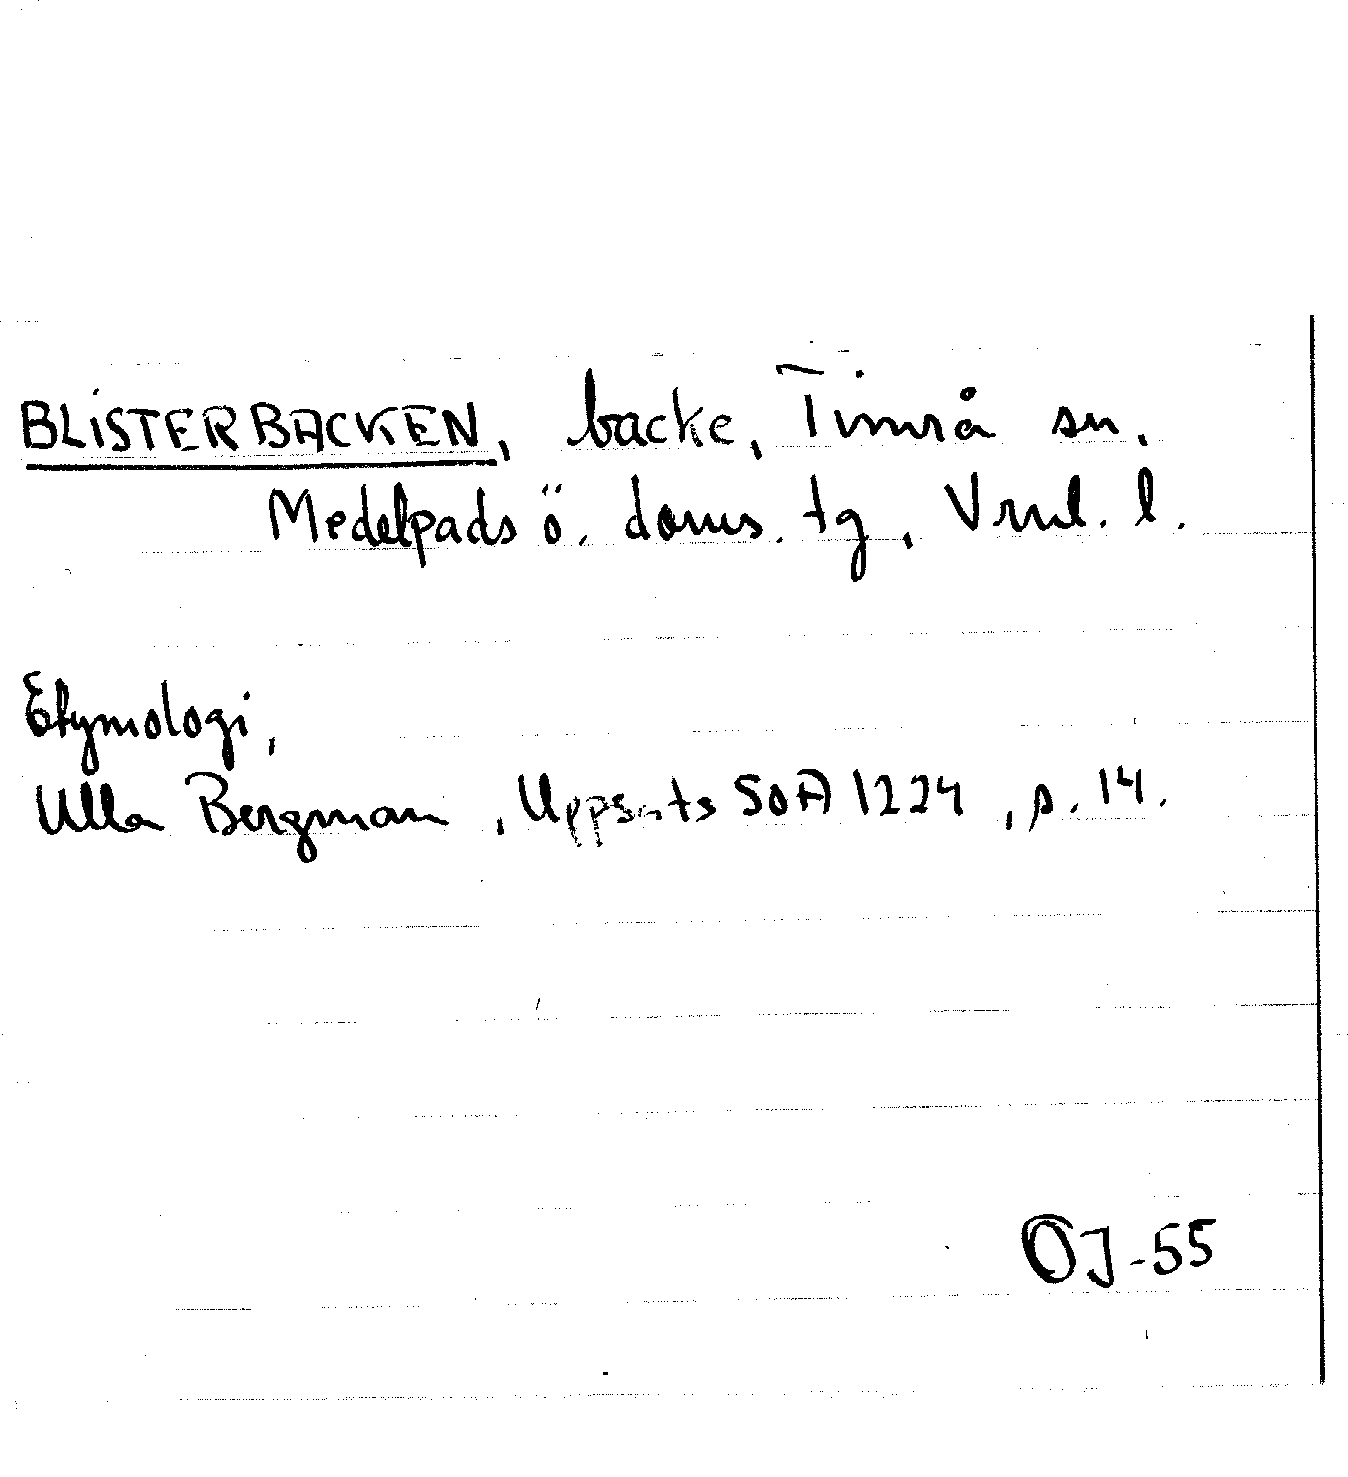 BLISTERBACKEN, backe, Timrå sn,
Medelpads ö. doms. tg, Vrnl. l.
Etymologi,
Ulla Bergman, Uppsats SOA 1224, p. 14.
OJ-55